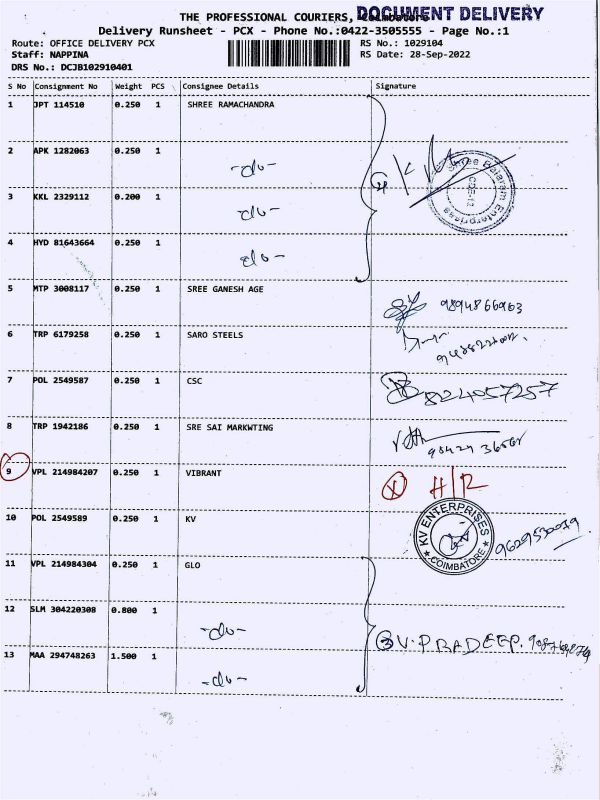 DOCUMENT DELIVERY
THE PROFESSIONAL COURIERS, Coimbatore
Delivery Runsheet - PCX - Phone No.:0422-3505555 - Page No.:1
Route: OFFICE DELIVERY PCX RS No.: 1029104
Staff: NAPPINA RS Date: 28-Sep-2022
DRS No.: DCJB102910401
S No Consignment No Weight PCS Consignee Details Signature
1 JPT 114510 0.250 1 SHREE RAMACHANDRA
2 APK 1282063 0.250 1 -do-
3 KKL 2329112 0.200 1 -do-
Shree Balaram Enterprises CBE-12
4 HYD 81643664 0.250 1 -do-
5 MTP 3008117 0.250 1 SREE GANESH AGE 9894866963
6 TRP 6179258 0.250 1 SARO STEELS
7 POL 2549587 0.250 1 CSC 8124057257
8 TRP 1942186 0.250 1 SRE SAI MARKWTING
9 VPL 214984207 0.250 1 VIBRANT X H/R
10 POL 2549589 0.250 1 KV KV ENTERPRISES COIMBATORE
11 VPL 214984304 0.250 1 GLO
12 SLM 304220308 0.800 1 -do- 3 V. PRADEEP.
13 MAA 294748263 1.500 1 -do-